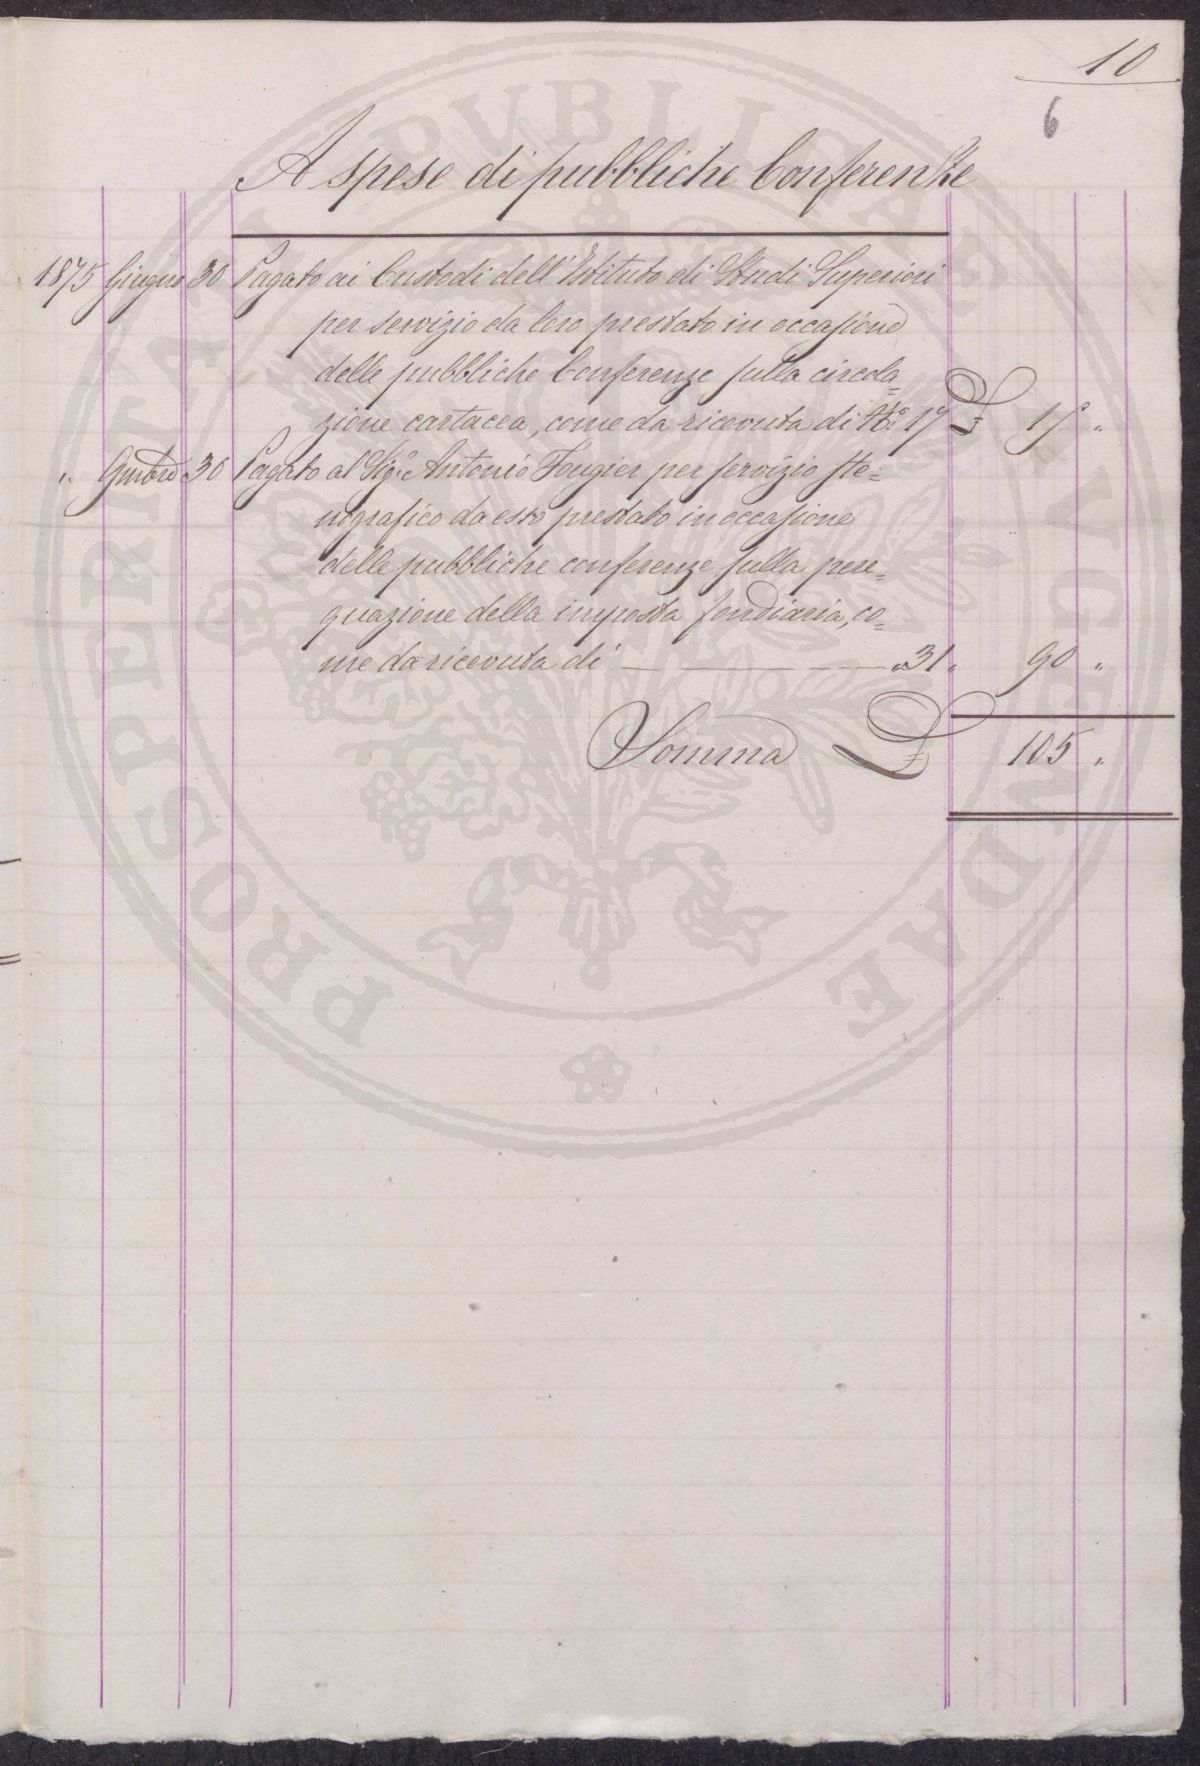 10
6
A spese di pubbliche Conferenze
1875 Giugno 30 Pagato ai Custodi dell'Istituto di Studi Superiori
per servizio da loro prestato in occasione
delle pubbliche Conferenze sulla circola=
zione cartacea, come da ricevuta di N.° 17 £ 15 "
" 9mbre 30 Pagato al Sig.r Antonio Fougier per servizio ste=
nografico da esso prestato in occasione
delle pubbliche conferenze sulla pere=
quazione della imposta fondiaria, co=
me da ricevuta di " 31 " 90 "
Somma £ 105 "
PROSPERITATI PUBLICAE AUGENDAE